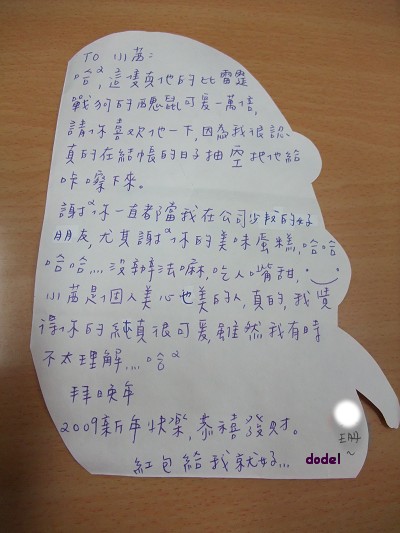 TO 小萬:
哈~,這隻真他的比雷霆
戰狗的醜鼠可愛一萬倍,
請你喜歡他一下,因為我很認
真的在結帳的日子抽空把他給
咔嚓下來。
謝~你一直都當我在公司少數的好
朋友,尤其謝~你的美味蛋糕,哈哈
哈哈....沒辦法嘛,吃人嘴甜,
小萬是個人美心也美的人,真的,我覺
得你的純真很可愛,雖然我有時
不太理解....哈~
拜晚年
2009新年快樂,恭禧發財。
紅包給我就好...
dodel